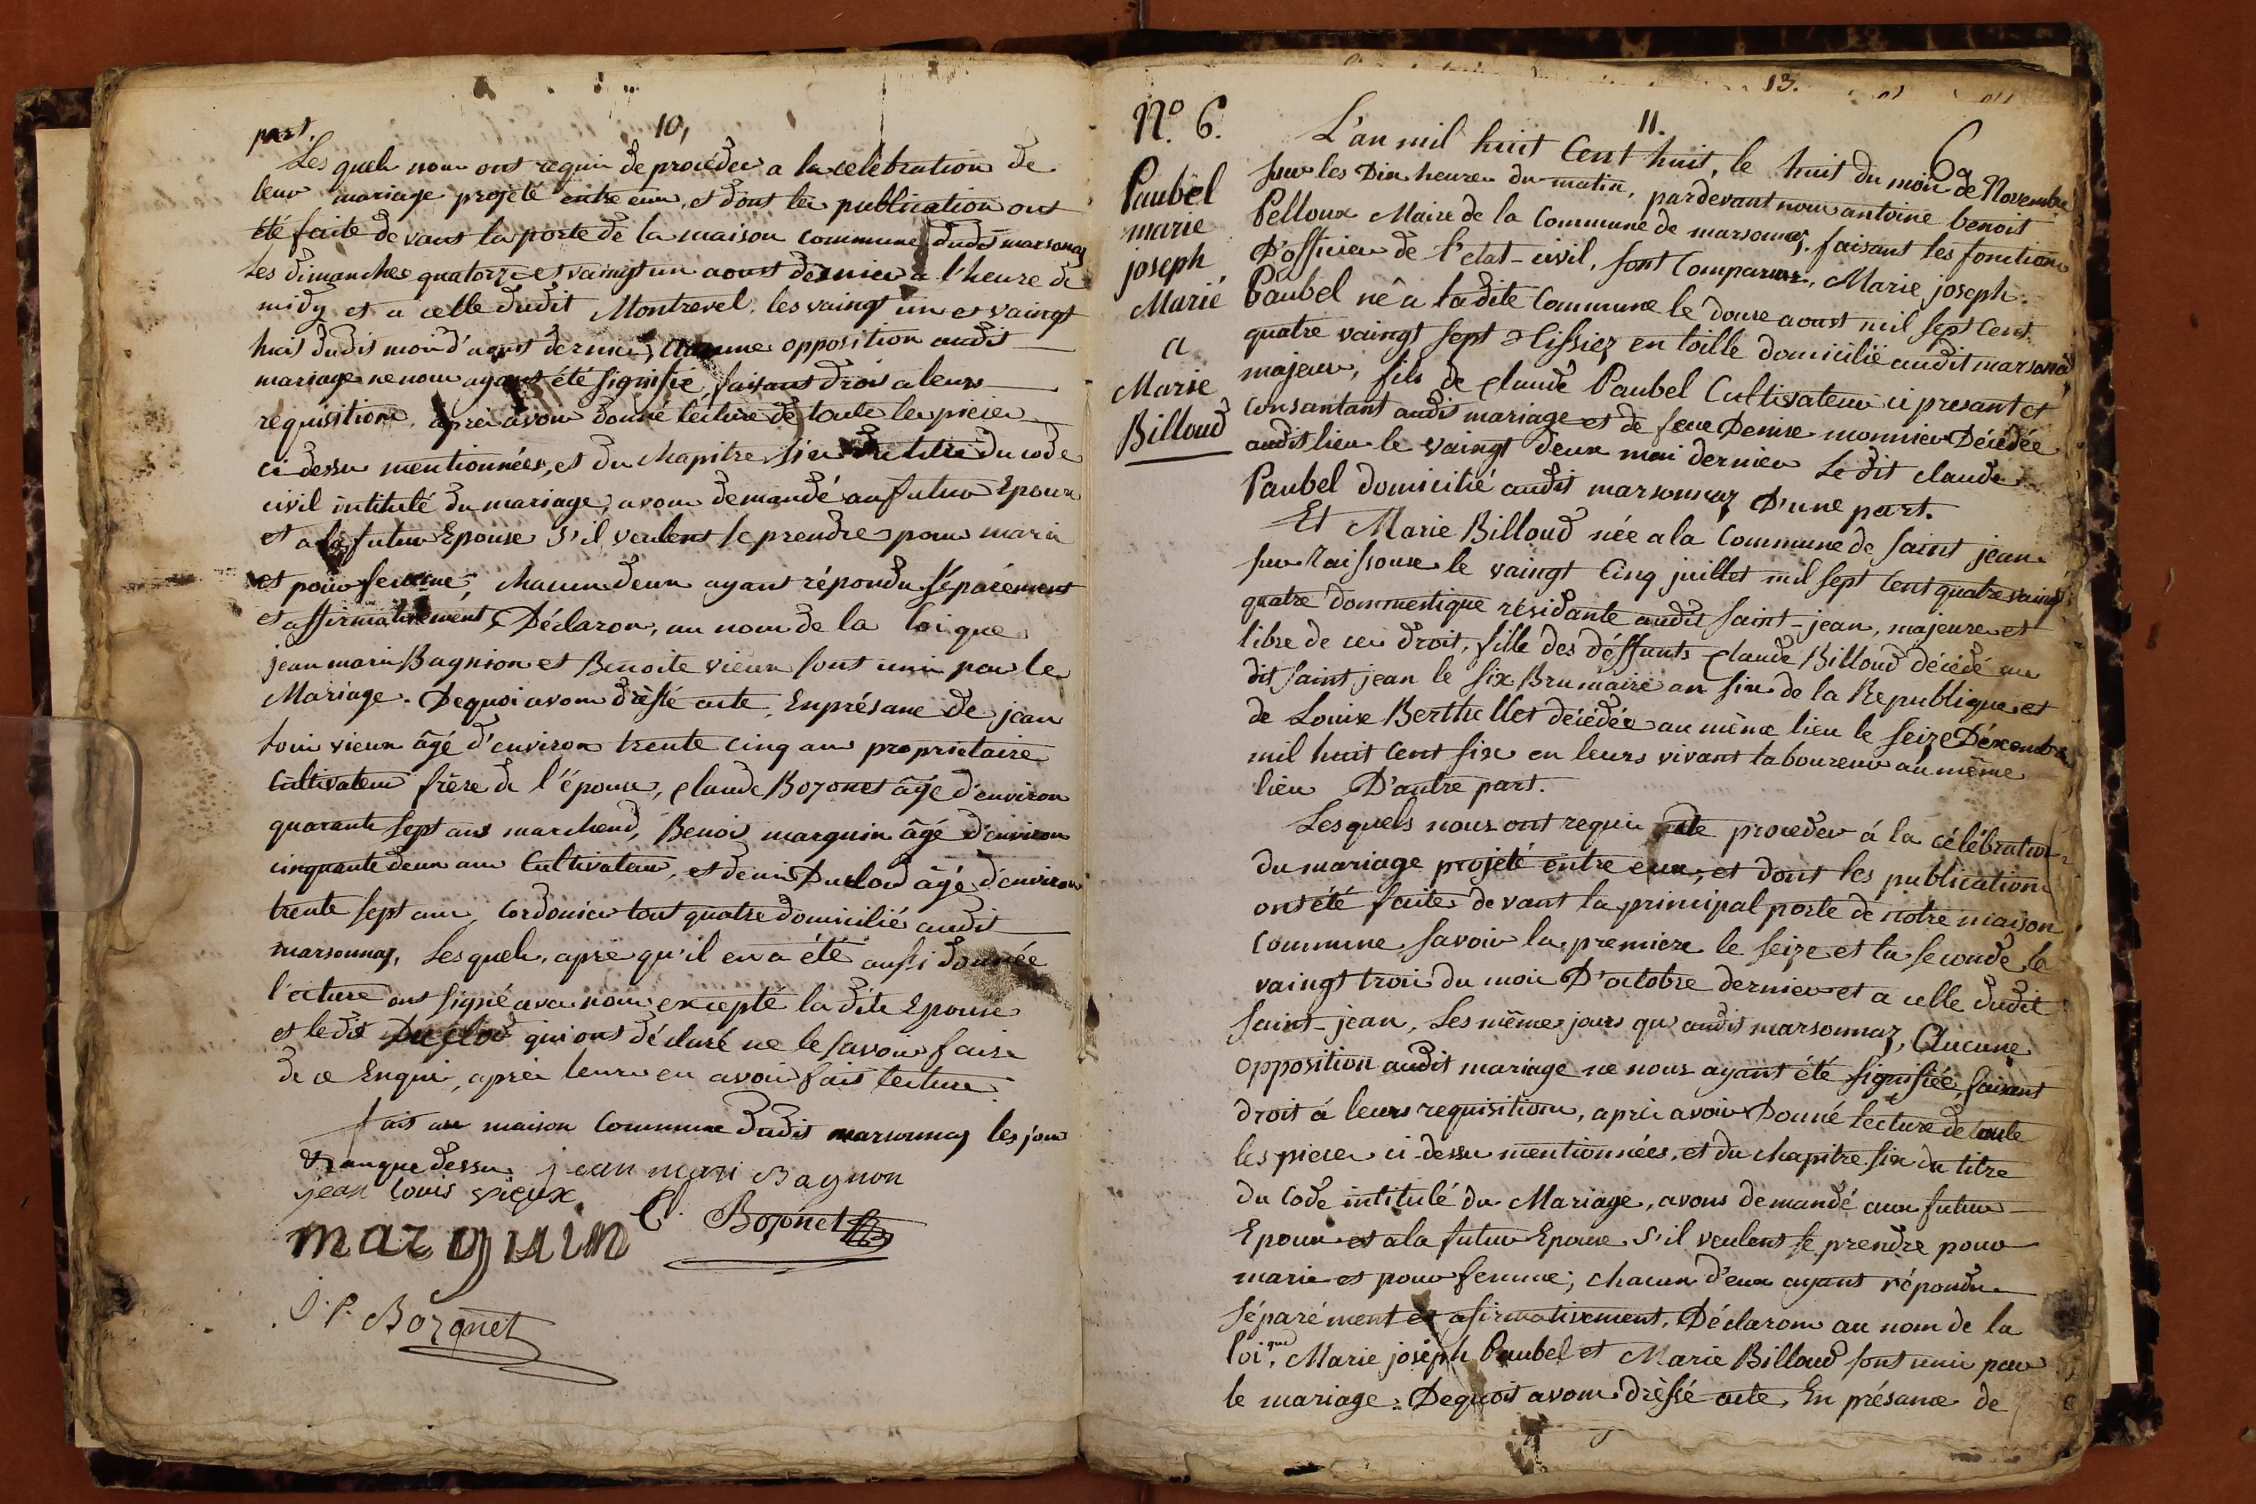 part.
10,
Les quels nous ont requis de procéder a la celebration de
leur mariage projeté entre eux, et dont les publication ont
été faite devant la porte de la maison commune dudit marsonnaz
Les dimanches quatorze et vaingt un aoust dernier a l'heure de
midy et a celle dudit Montrevel, les vaingt un et vaingt
huit dudit mois d'aoust dernier, Aucune opposition audit
mariage ne nous ayant été signifié, faisant droit a leurs
requisitions, apres avoir donné lécture de toute les pieces
ci dessu mentionnées, et du chapitre six du titre du code
civil intitulé du mariage, avons demandé au futur Epoux
et a la futur Epouse s'il veulent se prendre pour maris
et pour femme, chacun deux ayant répondu séparément
et affirmativement, Déclarons, au nom de la loi que
jean marie Bagnion et Benoite vieux sont unis par le
Mariage. Dequoi avons dréssé acte, Enprésance de jean
louis vieux âgé d'environ trente cinq ans propriétaire
Cultivateur frère de l'épouse, claude Bozonet âgé d'environ
quarante sept ans marchend, Benoit marguin âgé d'environ
cinquante deux ans Cultivateur, et denis Duclod âgé d'environ
trente sept ans, Cordonier tout quatre domicilié audit
marsonnaz, Lesquels, apres qu'il en a été aussi donnée
l'ecture ont signé avec nous excepté la dite Epouse
et ledit Duclod qui ont déclaré ne le savoir faire
de ce Enquis, apres leurs en avoir fait lecture.
fait au maison Commune dudit marsonnaz les jour
& an que dessu jean mari Bagnon
jean louis vieux
marguin Cl. Bozonet
J. P. Bozonet
13.
11.
6
N.° 6.
Paubel
marie
joseph
Marié
a
Marie
Billoud
L'an mil huit Cent huit, le huit du mois de Novembre
sur les Dix heures du matin, pardevant nous antoine benoit
Pelloux Maire de la Commune de marsonnaz, faisant les fonctions
D'officier de l'etat-civil, sont Comparus, Marie joseph
Paubel né a ladite Commune le douse aoust mil sept Cent
quatre vaingt sept Tissiez en toille domicilié audit marsonnaz
majeur, fils de claude Paubel Cultivateur ci presant et
Consantant audit mariage et de feue Denise monnier Décédée
audit lieu le vaingt deux mai dernier Le dit claude
Paubel domicilié audit marsonnaz D'une part.
Et Marie Billoud née a la Commune de Saint jean
sur Raissouse le vaingt Cinq juillet mil sept Cent quatre vaingt
quatre dommestique résidante audit Saint-jean, majeure et
libre de ces droit, fille des déffunts claude Billoud décédé au
dit Saint jean le six Brumaire an six de la Republique et
de Louise Berthellet décédée au même lieu le seize Décembre
mil huit Cent six en leurs vivant laboureur au même
lieu D'autre part.
Lesquels nous ont requis de proceder á la célébration
du mariage projeté entre eux, et dont les publications
ont été faites devant la principal porte de notre maison
Commune, Savoir la premiere le seize et la seconde le
vaingt trois du mois D'octobre dernier et a celle dudit
Saint-jean, Les même jours qu'audit marsonnaz, Aucune
opposition audit mariage ne nous ayant été signifiée, faisant
droit á leurs requisitions, apres avoir Donné lecture de toute
les pieces ci-dessu mentionnées, et du chapitre six du titre
du Code intitulé du Mariage, avons demandé aux futur
Epoux et a la futur Epouse s'il veulent se prendre pour
marie et pour femme; chacun d'eux ayant répondu
Séparément et afirmativement, Déclarons au nom de la
loi, que Marie joséph Paubel et Marie Billoud sont unis par
le mariage. Dequoi avons dréssé acte, En présance de